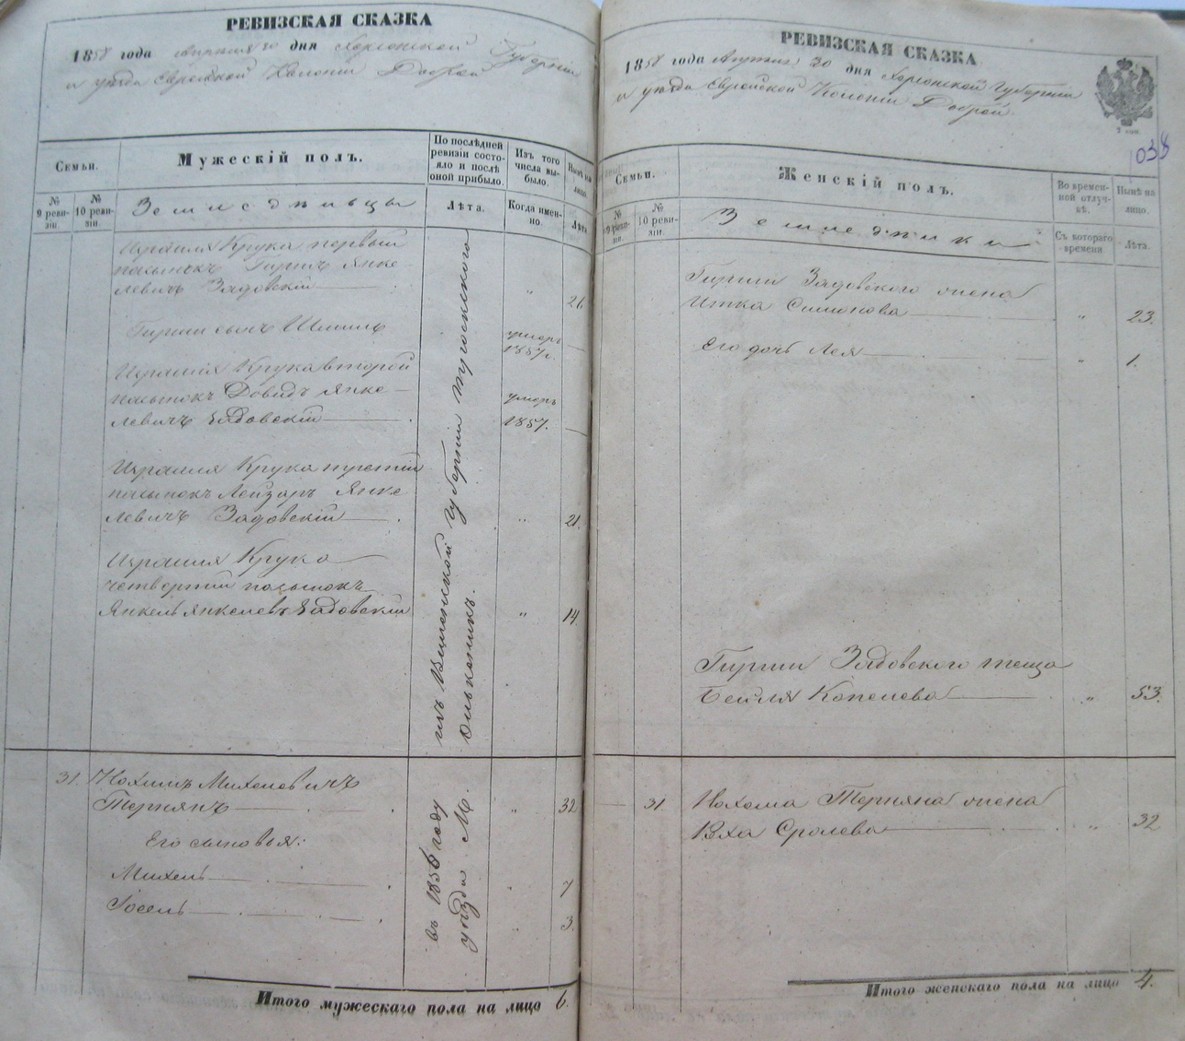 РЕВИЗСКАЯ СКАЗКА
1858 года Апреля 30 дня Херсонской Губерніи
и уѣзда Еврейской Колоніи Доброй
Семьи.
Мужескій полъ.
По послѣдней ревизіи состояло и послѣ оной прибыло.
Изъ того числа выбыло.
№ 9 ревизіи.
№ 10 ревизіи.
Земледѣльцы
Лѣта.
Когда именно.
Лѣта
Израиля Крука первый
пасынокъ Гиршъ Янке
левичъ Задовскій " 26
Гирши сынъ Шмуиль умеръ 1857 г.
Израиля Крука второй
пасынокъ Довидъ Янке
левичъ Задовскій умеръ 1857.
Израиля Крука третій
пасынокъ Лейзаръ Янке
левичъ Задовскій " 21.
Израиля Крука
четвертый пасынокъ
Янкель Янкелев. Задовскій " 14.
изъ Виленской губерніи Трокскаго
Олькеникъ.
31 Нохимъ Михелевичъ
Тернянъ " 32
Его сыновья:
Михель " 7
Іосель " 3.
въ 1856 году
уѣзда М.
Итого мужескаго пола на лицо 6.
РЕВИЗСКАЯ СКАЗКА
1858 года Апреля 30 дня Херсонской Губерніи
и уѣзда Еврейской Колоніи Доброй.
1038
Семьи.
Женскій полъ.
Во временной отлучкѣ.
Нынѣ на лицо.
№ 10 ревизіи.
Земледѣлки
Съ котораго времени
Лѣта.
Гирши Задовского жена
Итка Симонова " 23.
Его дочь Лея " 1.
Гирши Задовского теща
Бейля Копелева " 53.
31 Нохима Терняна жена
Хая Сролева " 32
Итого женскаго пола на лицо 4.